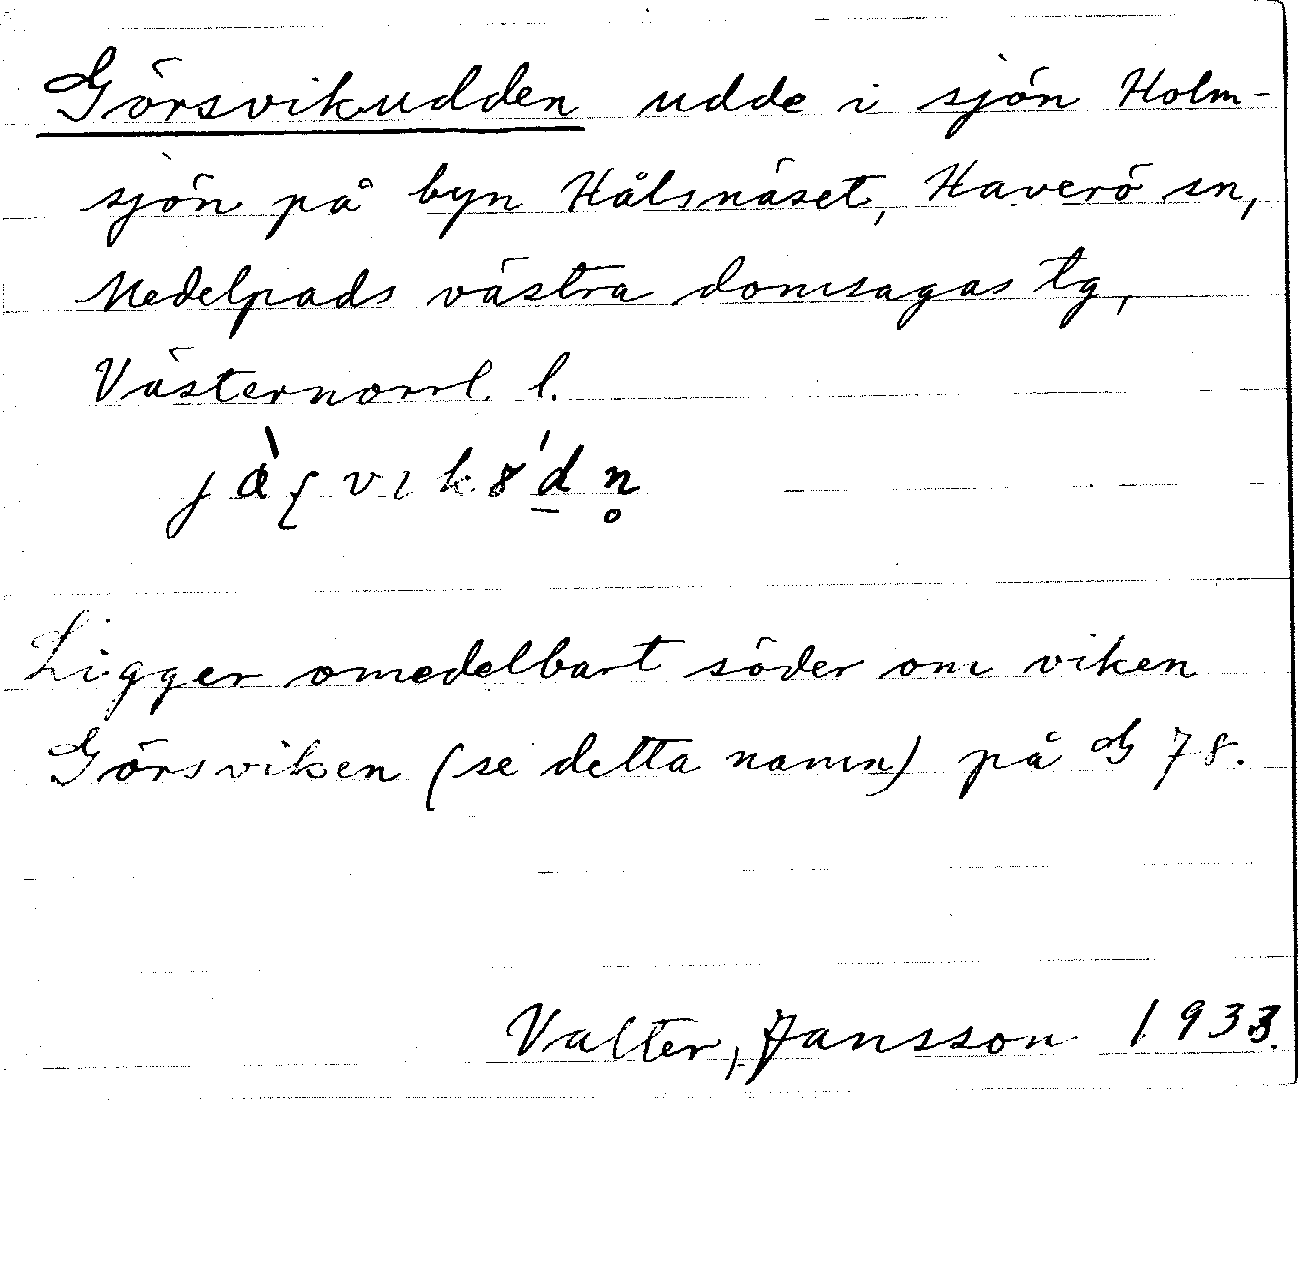 Görsvikudden udde i sjön Holm-
sjön på byn Hålsnäset, Haverö sn,
Medelpads västra domsagas tg,
Västernorrl. l.
Ligger omedelbart söder om viken
Görsviken (se detta namn) på G 78.
Valter, Jansson 1933.